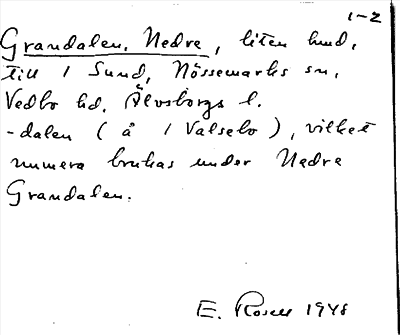 1-2
Grandalen, Nedre, liten lund,
till 1 Sund, Nössemarks sn,
Vedbo hd, Älvsborgs l.
-dalen (å 1 Valsebo), vilket
numera brukas under Nedre
Grandalen.
E. Rosell 1948